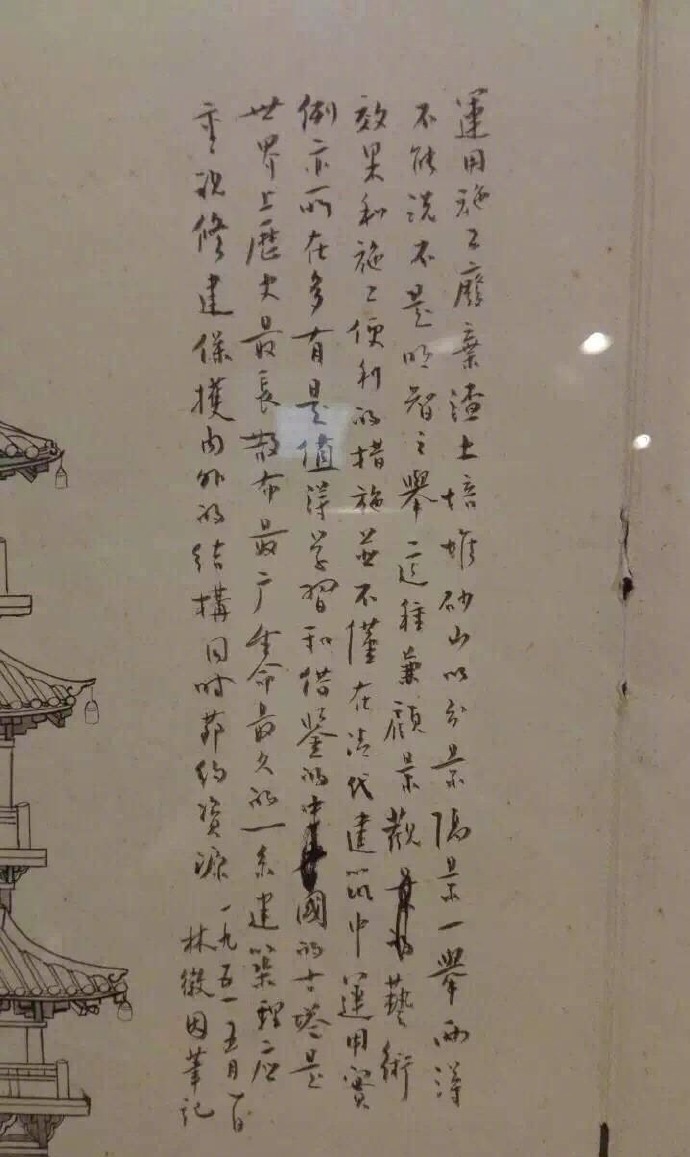 運用施工廢棄渣土培堆砂山以分景隔景一舉兩得
不能說不是明智之舉這種兼顧景觀藝術
效果和施工便利的措施並不僅在清代建筑中運用實
例亦所在多有是值得学習和借鉴的中國的古塔是
世界上歷史最長散布最广生命最久的一系建築理应
重視修建保護内外的结構同时節约资源
一九五一五月
林徽因筆記